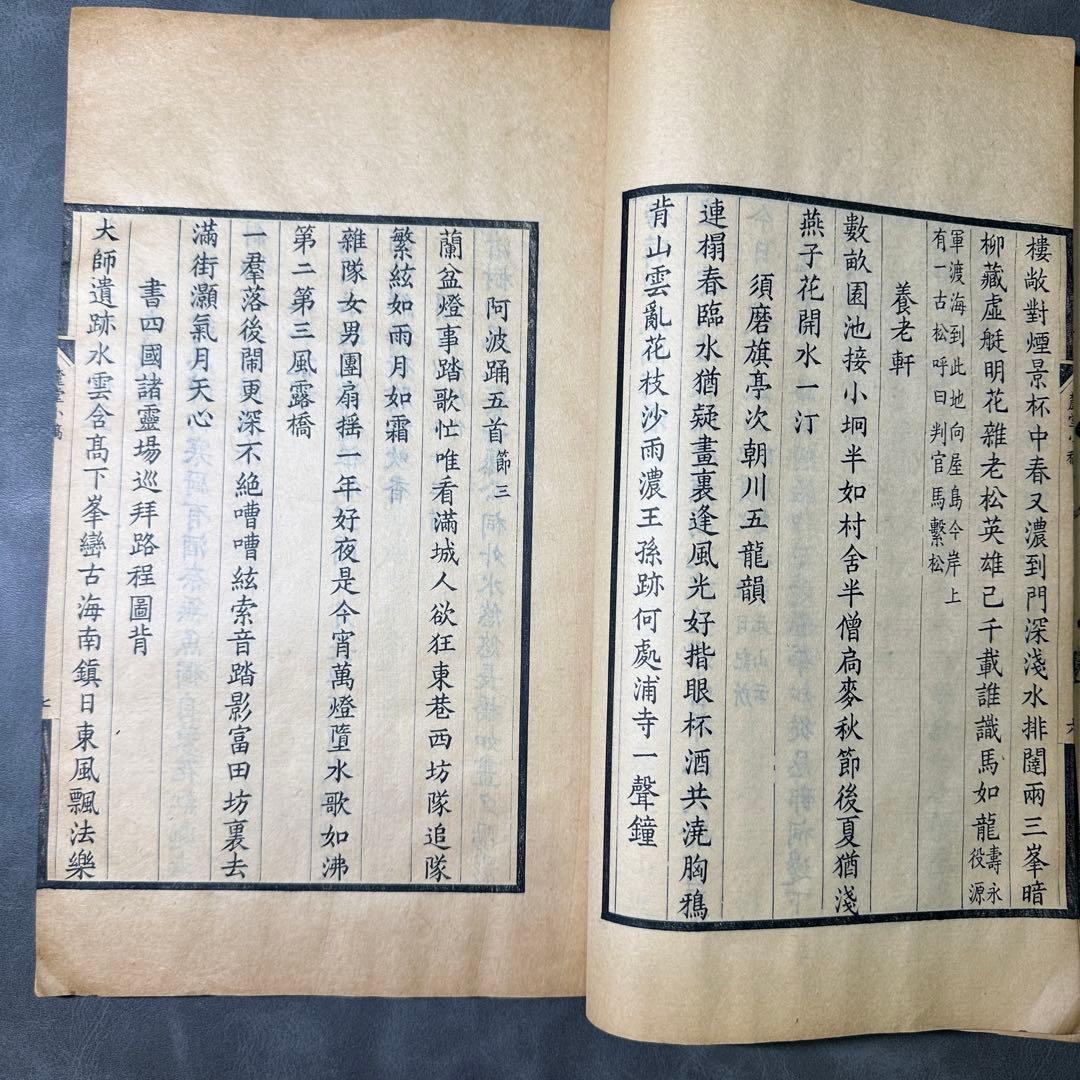 樓敞對煙景杯中春又濃到門深淺水排闥兩三峯暗
柳藏虛艇明花雜老松英雄已千載誰識馬如龍壽永
役源
軍渡海到此地向屋島今岸上
有一古松呼曰判官馬繫松
養老軒
數畝園池接小坰半如村舍半僧扃麥秋節後夏猶淺
燕子花開水一汀
須磨旗亭次朝川五龍韻
連榻春臨水猶疑畫裏逢風光好揩眼杯酒共澆胸鴉
背山雲亂花枝沙雨濃王孫跡何處浦寺一聲鐘
六
阿波踊五首節三
蘭盆燈事踏歌忙唯看滿城人欲狂東巷西坊隊追隊
繁絃如雨月如霜
雜隊女男團扇搖一年好夜是今宵萬燈墮水歌如沸
第二第三風露橋
一羣落後鬧更深不絶嘈嘈絃索音踏影富田坊裏去
滿街灝氣月天心
書四國諸靈場巡拜路程圖背
大師遺跡水雲含髙下峯巒古海南鎭日東風飄法樂
七